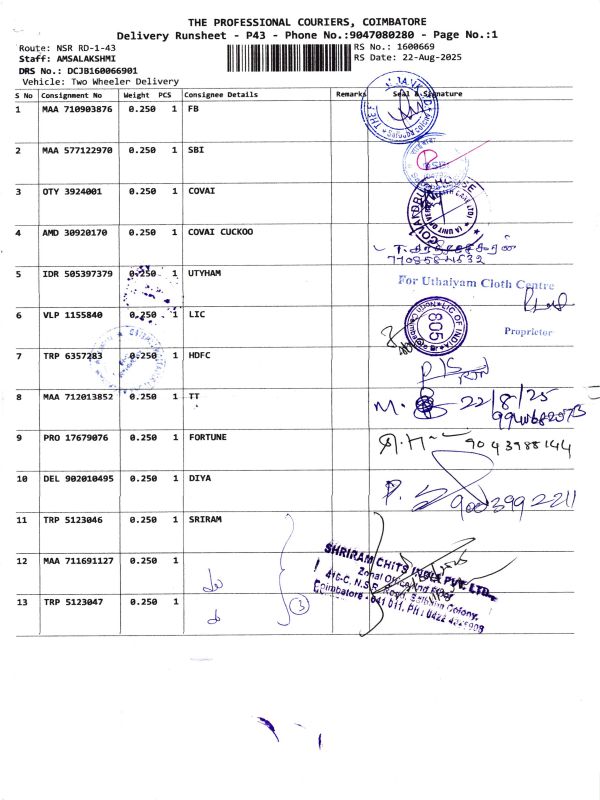 THE PROFESSIONAL COURIERS, COIMBATORE
Delivery Runsheet - P43 - Phone No.:9047080280 - Page No.:1
Route: NSR RD-1-43
RS No.: 1600669
Staff: AMSALAKSHMI
RS Date: 22-Aug-2025
DRS No.: DCJB160066901
Vehicle: Two Wheeler Delivery
S No Consignment No Weight PCS Consignee Details Remarks Seal & Signature
1 MAA 710903876 0.250 1 FB
2 MAA 577122970 0.250 1 SBI
3 OTY 3924001 0.250 1 COVAI
4 AMD 30920170 0.250 1 COVAI CUCKOO
5 IDR 505397379 0.250 1 UTYHAM
For Uthaiyam Cloth Centre
Proprietor
6 VLP 1155840 0.250 1 LIC
LIC OF INDIA
805
7 TRP 6357283 0.250 1 HDFC
8 MAA 712013852 0.250 1 TT
22/8/25
9 PRO 17679076 0.250 1 FORTUNE
9043988144
10 DEL 902010495 0.250 1 DIYA
11 TRP 5123046 0.250 1 SRIRAM
12 MAA 711691127 0.250 1
13 TRP 5123047 0.250 1
3
SHRIRAM CHITS INDIA PVT. LTD.
416-C, N.S.R. Road, Saibaba Colony,
Coimbatore - 641 011.